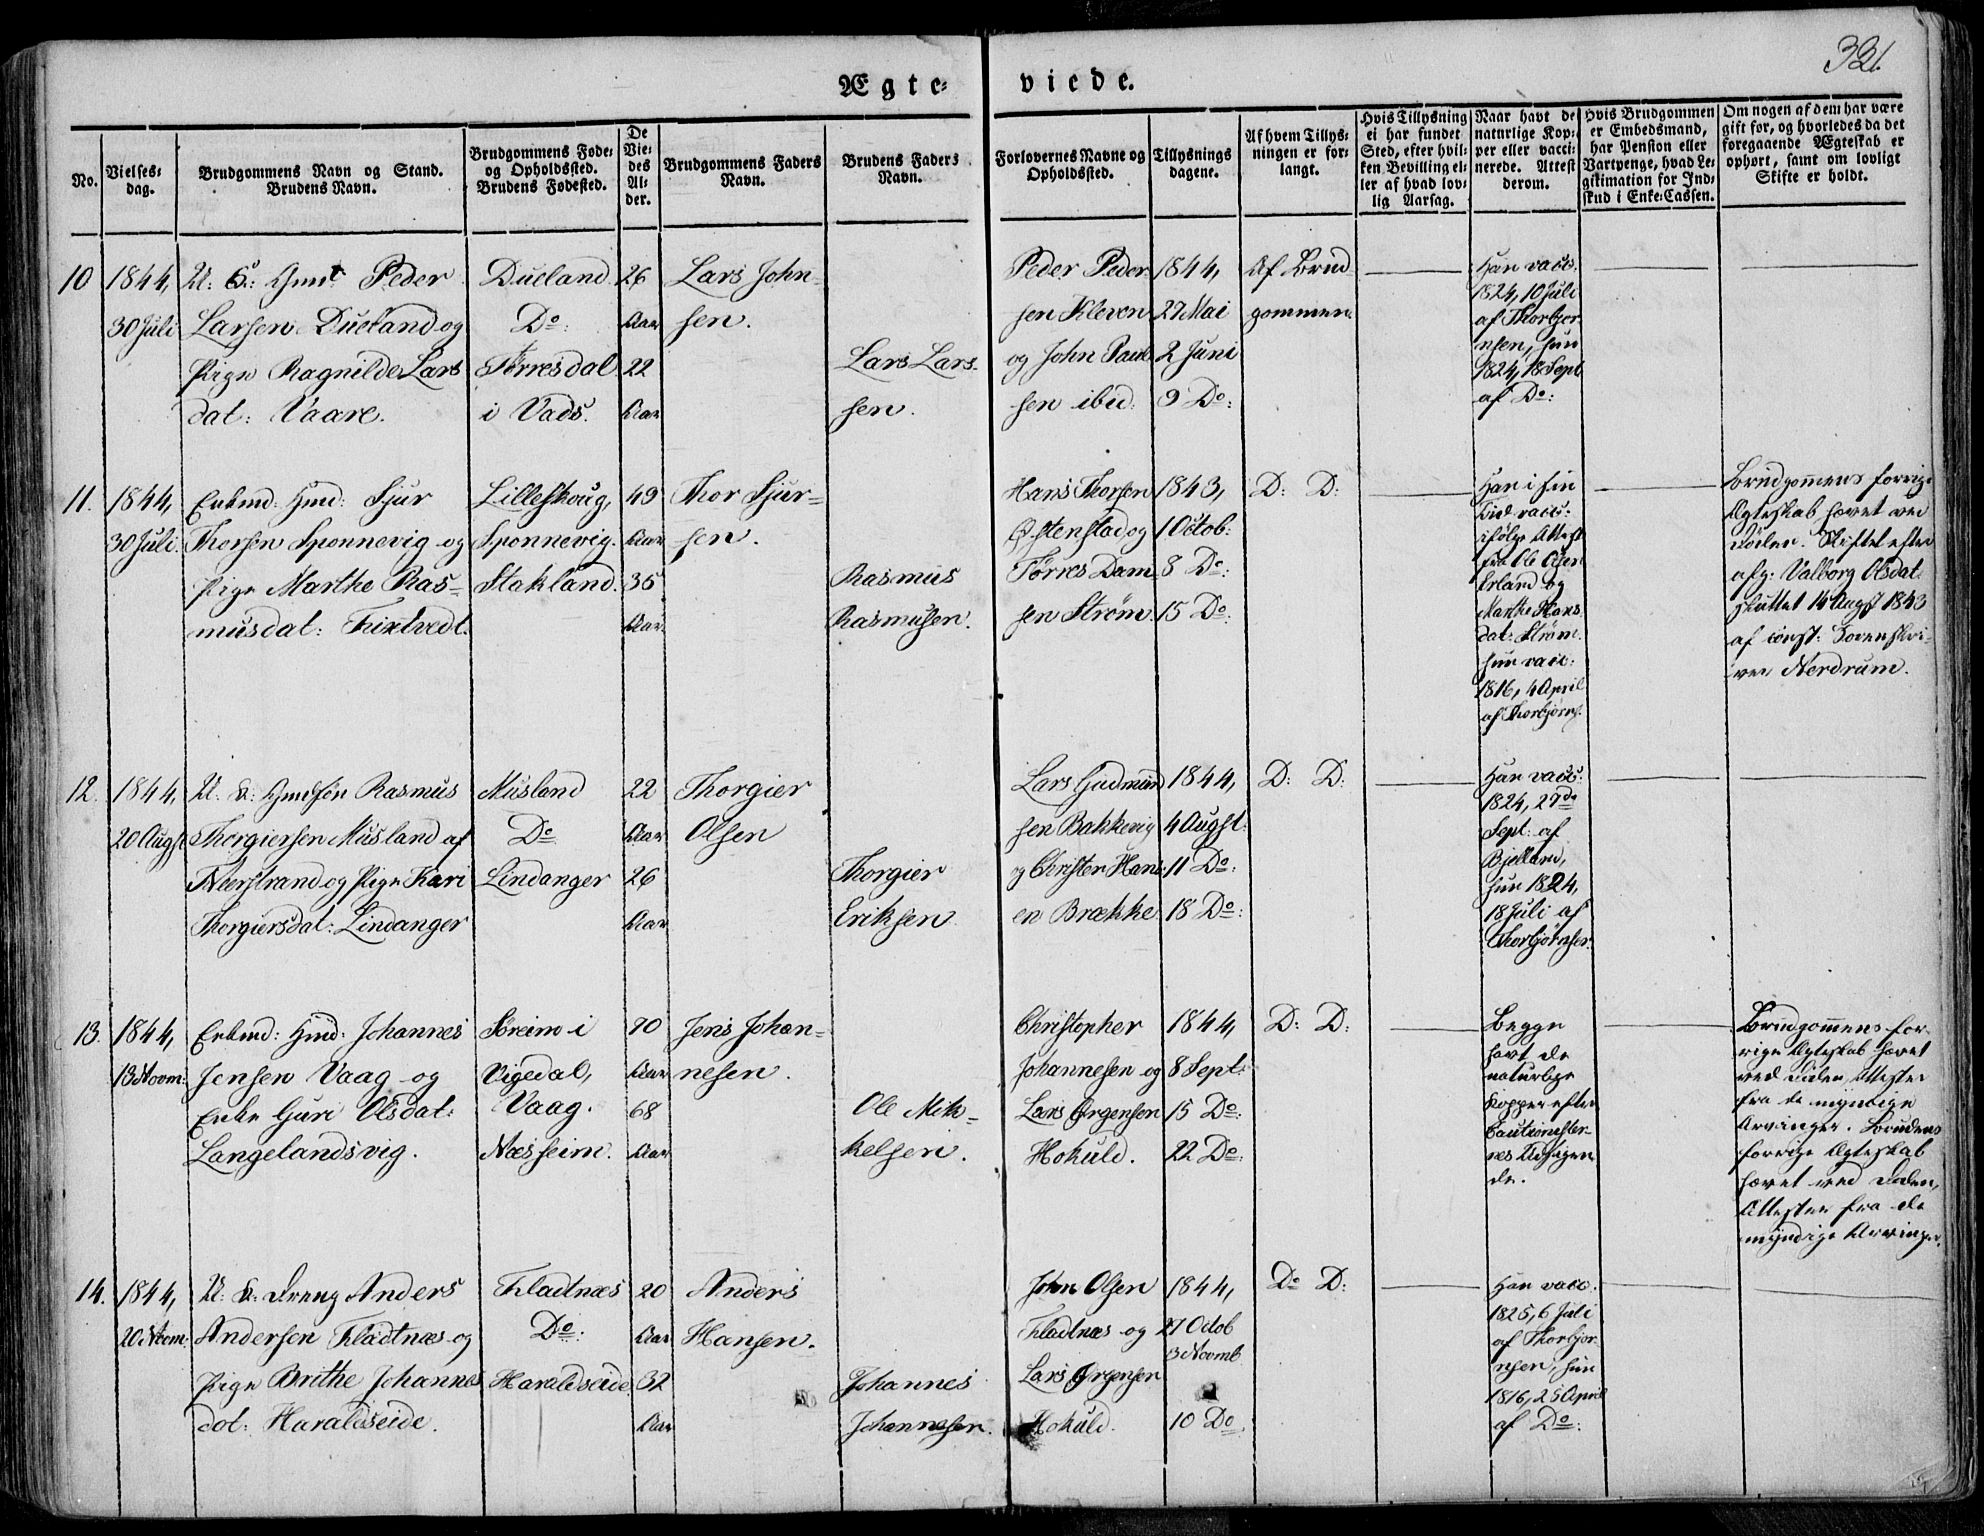 331.
Ægte-
viede.
No.
Vielses-
dag.
Brudgommens Navn og Stand.
Brudens Navn.
Brudgommens Føde-
og Opholdssted.
Brudens Fødested.
De
Vie-
des
Al-
der.
Brudgommens Faders
Navn.
Brudens Faders
Navn.
Forlovernes Navne og
Opholdssted.
Tillysnings
dagene.
Af hvem Tillys-
ningen er for-
langt.
Hvis Tillysning
ei har fundet
Sted, efter hvil-
ken Bevilling el-
ler af hvad lov-
lig Aarsag.
Naar havt de
naturlige Kop-
per eller vacci-
nerede. Attest
derom.
Hvis Brudgommen
er Embedsmand,
har Pension eller
Vartpenge, hvad Le-
gitimation for Ind-
skud i Enke-Cassen.
Om nogen af dem har være
gift før, og hvorledes da det
foregaaende Ægteskab er
ophørt, samt om lovligt
Skifte er holdt.
10
1844,
30 Juli
Peder
Larsen Dueland og
Pige Ragnilde Lars
dat: Vaare.
Dueland
Do:
Tørresdal
i Vads.
26
Aar
22
Aar
Lars John-
sen.
Lars Lars-
sen.
Peder Peder-
sen Kleven
og John Paul-
sen ibid:
1844,
27 Mai
2 Juni
9 Do:
Af Brud
gommen
Han vacc:
1824, 10 Juli
af Thorbjør
nsen, hun
1824, 18 Sept
af Do:
11.
1844,
30 Juli.
Enkmd: Gmd: Sjur
Thorsen Sponnevig og
Pige Marthe Ras-
musdat:
Lilleskoug,
Sponnevig.
Stakland.
49
Aar
35
Aar.
Thor Sjur-
sen.
Rasmus
Rasmussen.
Hans Thorsen
Østenstad og
Tørres Dam-
sen Strøm.
1843,
1 Octob:
8 Do:
15 Do:
D: D:
Han i sin
Tid vacc:
ifølge Attest
fra Ole Olsen
Erland og
Marthe Hans
dat: Strøm.
hun vacc:
1816, 4 April
af Thorbjørns.
Brudgommens forrige
Ægteskab hævet ved
Døden. Skiftet efter
afg: Valborg Olsdat:
sluttet 14 Augst 1843
af const: Sorenskri-
ver Nerdrum.
12.
1844,
20 Augst
U: K: Gmdsøn Rasmus
Thorgiersen Musland af
Neerstrand og Pige Kari
Thorgiersdat: Lindanger
Musland
Do
Lindanger
22
Aar
26
Aar
Thorgier
Olsen
Thorgier
Eriksen
Lars Gudmund
sen Bakkevig
og Christen Hans-
en Brække
1844,
4 Augst:
11 Do:
18 Do:
D: D:
Han vacc:
1824, 27de
Sept: af
Bjelland,
hun 1824,
18 Juli af
Thorbjørnsen.
13.
1844,
13 Novm:
Enkmd: Gmd: Johannes
Jensen Vaag og
Enke Guri Olsdat:
Langelandsvig.
Søreim i
Vigedal,
Vaag.
Næsseim.
70
Aar
68
Aar
Jens Johan-
nesen.
Ole Mik-
kelsen.
Christopher
Johannesen og
Lars Ørgensen
Hokuld.
1844,
8 Sept:
15 Do:
22 Do:
D: D:
Begge
havt de
naturlige
Kopper efter
Cautionister-
nes Udsigen-
de.
Brudgommens for-
rige Ægteskab hævet
ved Døden, Attester
fra de myndige
Arvinger. Brudens
forrige Ægteskab
hævet ved Døden,
Attester fra de
myndige Arvinger.
14.
1844,
20 Novm:
U: K: Dreng Anders
Andersen Fladtnæs og
Pige Brithe Johannes
dat: Haraldseide.
Fladtnæs
Do:
Haraldseide
20
Aar
32
Aar
Anders
Hansen.
Johannes
Johannesen.
John Olsen
Fladtnæs og
Lars Ørgensen
Hokuld.
1844,
27 Octob
3 Novmb
10 Do
Do D:
Han vacc:
1825, 6 Juli
af Thorbjør
nsen, hun
1816, 25 April
af Do: